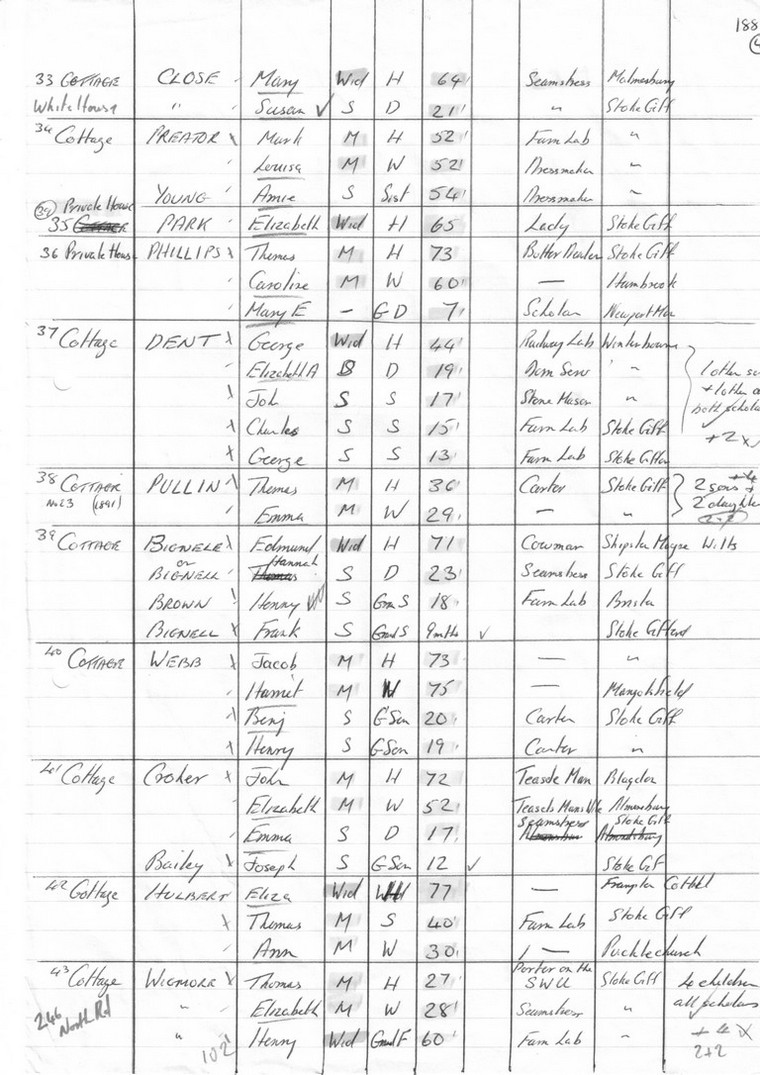 188
33 COTTAGE CLOSE Mary Wid H 64 Seamstress Malmesbury
White House " Susan ✓ S D 21 " Stoke Giff
34 Cottage PREATOR x Mark M H 52 Farm Lab "
Louisa M W 52 Dressmaker "
YOUNG Amie S Sist 54 Dressmaker "
Private House
35 PARK Elizabeth Wid H 65 Lady Stoke Giff
36 Private Hous PHILLIPS x Thomas M H 73 Butter Dealer Stoke Giff
Caroline M W 60 — Hambrook
Mary E - GD 7 Scholar Newport Mon
37 Cottage DENT x George Wid H 44 Railway Lab Winterbourne
Elizabeth A S D 19 Dom Serv "
x Joh S S 17 Stone Mason "
x Charles S S 15 Farm Lab Stoke Giff
x George S S 13 Farm Lab Stoke Giffor
1 other so
+ 1 other d
both schola
+ 2 x
38 COTTAGE PULLIN x Thomas M H 36 Carter Stoke Giff
No 23 (1891) Emma M W 29 — "
2 sons +
2 daughte
39 COTTAGE BIGNELE x Edmund Wid H 71 Cowman Shipton Moyne Wilts
or BIGNELL Hannah S D 23 Seamstress Stoke Giff
BROWN Henry S Gran S 18 Farm Lab Bristo
BIGNELL x Frank S Grand S 9mths ✓ Stoke Gifford
40 COTTAGE WEBB x Jacob M H 73 — "
Harriet M W 75 — Mangotsfield
x Benj S G Son 20 Carter Stoke Giff
x Henry S G Son 19 Carter "
41 Cottage Croker x John M H 72 Teasle Man Blagdon
Elizabeth M W 52 Teasels Mans Wife Almonsbury
Emma S D 17 Seamstress Stoke Giff
Bailey x Joseph S G Son 12 ✓ Stoke Gif
42 Cottage HULBERT Eliza Wid 77 — Frampton Cottel
x Thomas M S 40 Farm Lab Stoke Giff
Ann M W 30 — Pucklechurch
43 Cottage WIGMORE x Thomas M H 27 Porter on the SWU Stoke Giff
246 North Rd " Elizabeth M W 28 Seamstress "
" Henry Wid Grand F 60 Farm Lab "
4 children
all scholars
+ 4 x
2+2
102